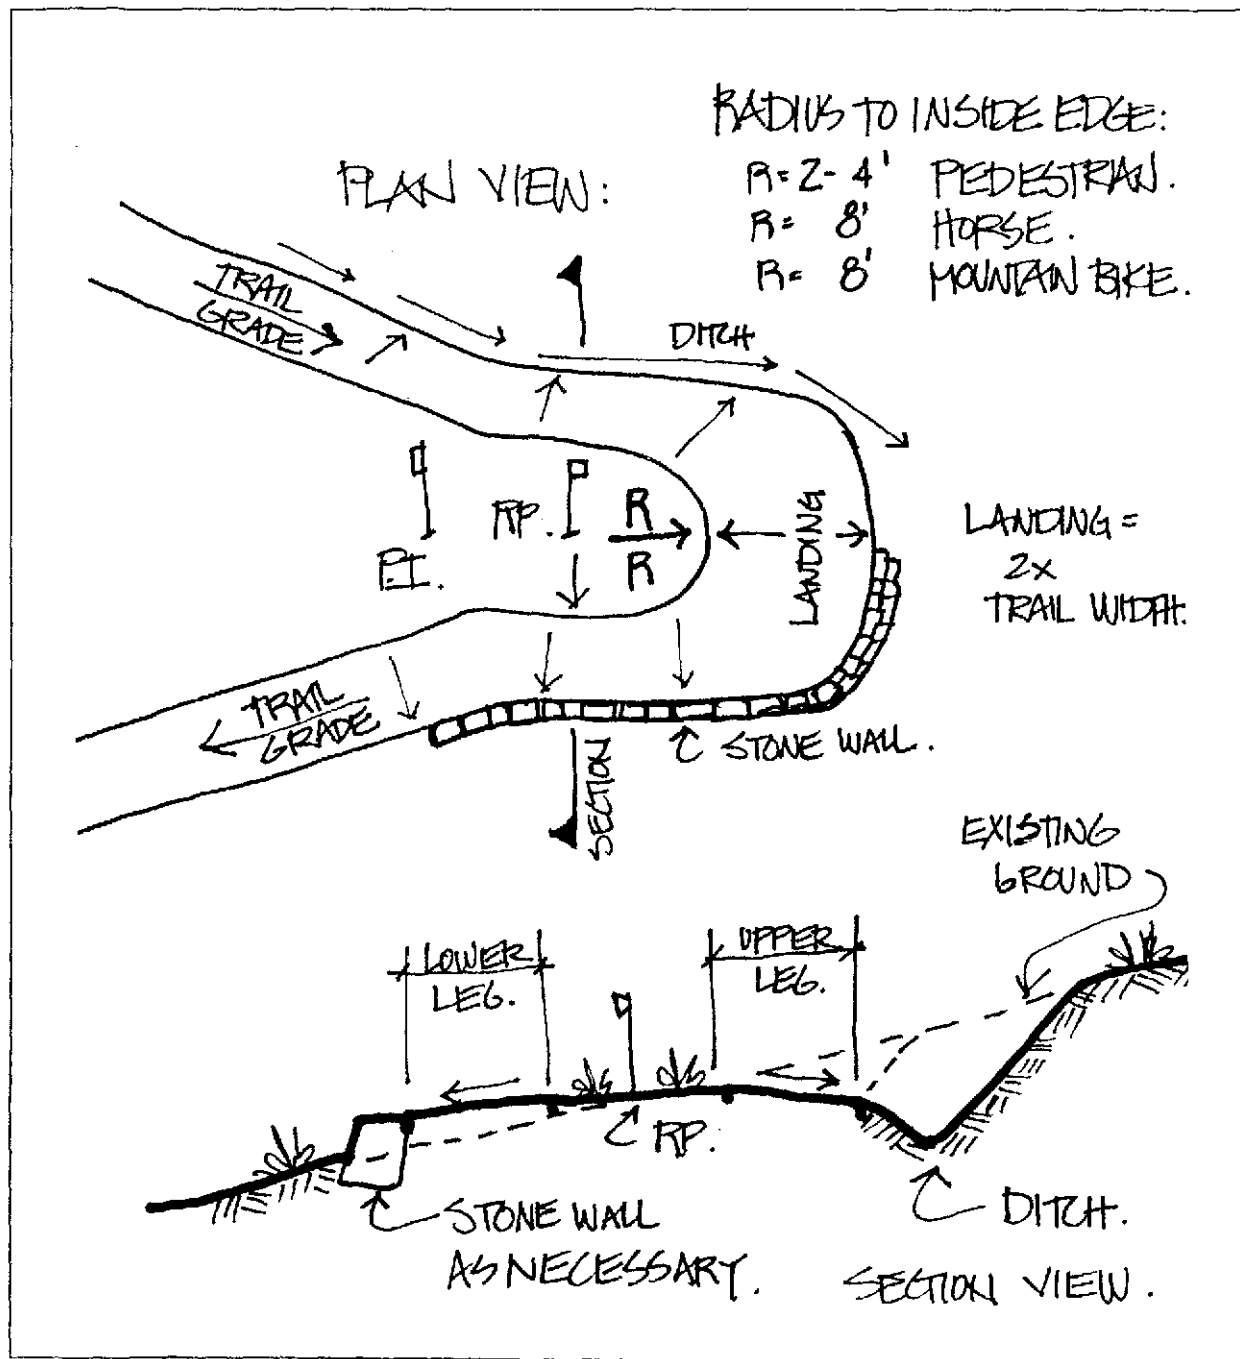 RADIUS TO INSIDE EDGE:
PLAN VIEW:
R=2-4' PEDESTRIAN.
R= 8' HORSE.
R= 8' MOUNTAIN BIKE.
TRAIL
GRADE
DITCH
R
R
RP.
P.I.
LANDING
LANDING =
2x
TRAIL WIDTH.
TRAIL
GRADE
STONE WALL.
SECTION
EXISTING
GROUND
LOWER
LEG.
UPPER
LEG.
RP.
STONE WALL
AS NECESSARY.
DITCH.
SECTION VIEW.